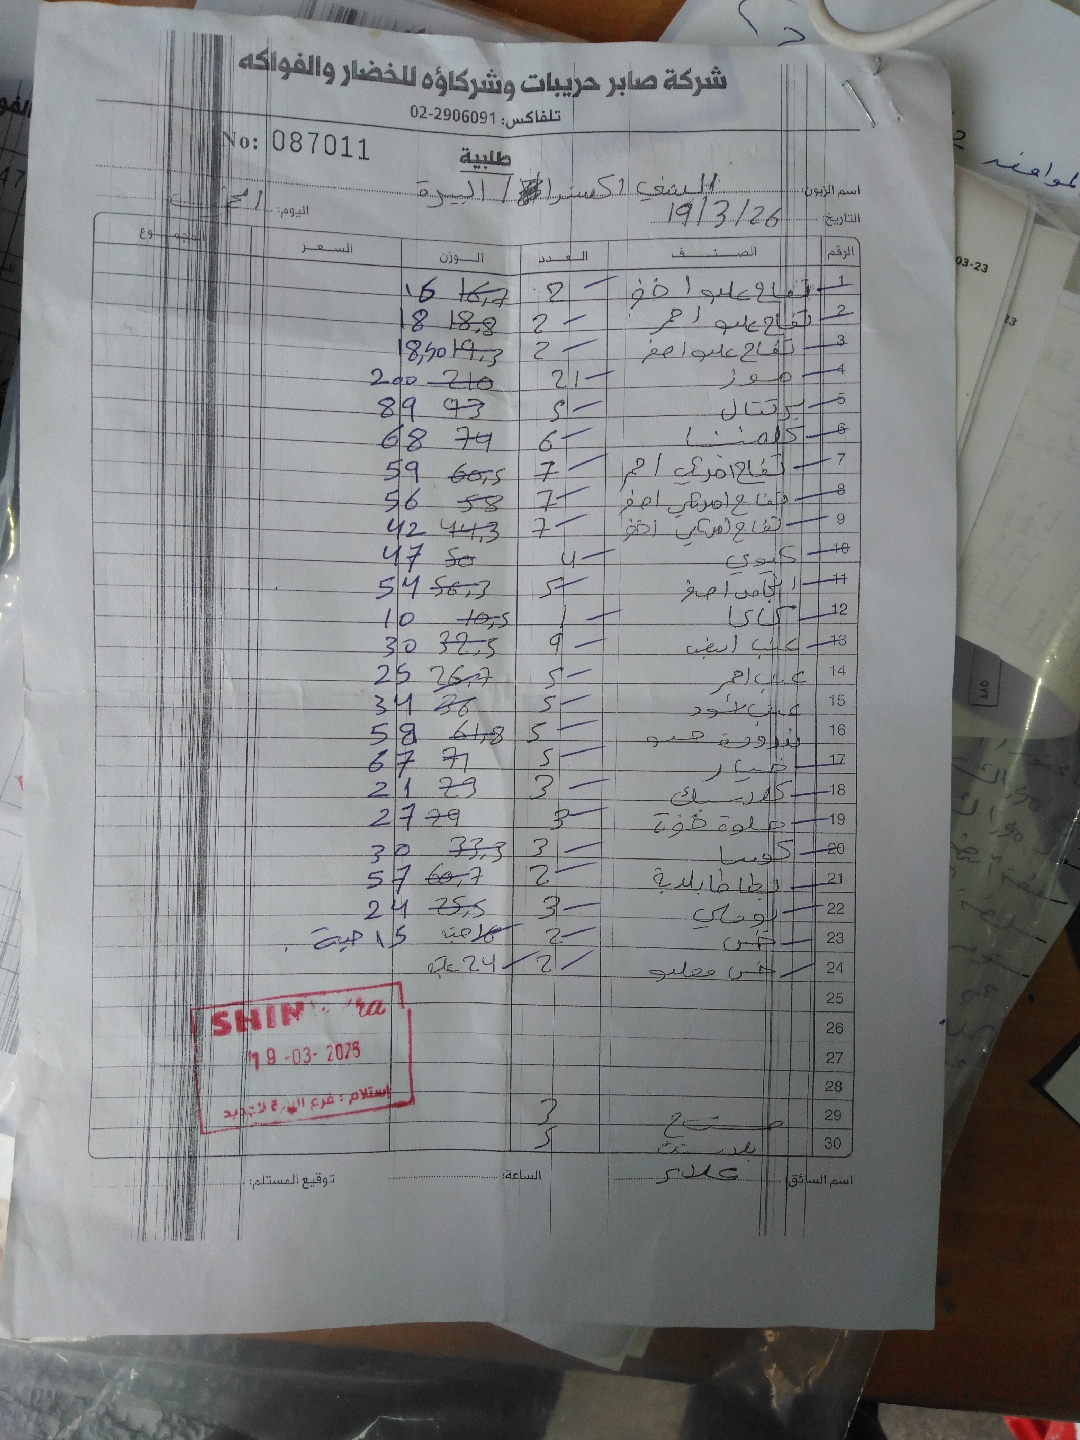 شركة صابر حريبات وشركاؤه للخضار والفواكه
تلفاكس: 02-2906091
No: 087011
طلبية
اسم الزبون: الشني اكسترا / البيرة
اليوم:
التاريخ: 19/3/26
الرقم الصنف العدد الوزن السعر المجموع
1 تفاح عليو اخضر 2 16,7 16
2 تفاح عليو احمر 2 18,8 18
3 تفاح عليو اصفر 2 19,3 18,50
4 موز 21 210 200
5 برتقال 5 93 89
6 كلمنتينا 6 74 68
7 تفاح امريكي احمر 7 60,5 59
8 تفاح امريكي اصفر 7 58 56
9 تفاح امريكي اخضر 7 44,3 42
10 كيوي 4 50 47
11 اجاص اصفر 5 56,3 54
12 كاكا 1 10,5 10
13 عنب ابيض 9 32,5 30
14 عنب احمر 5 26,7 25
15 عنب اسود 5 36 34
16 بندورة 5 61,8 58
17 خيار 5 71 67
18 3 23 21
19 حلوة 3 29 27
20 كوسا 3 33,3 30
21 بطاطا بلدية 2 60,7 57
22 3 25,5 24
23 خس 2 16 حبة 15 حبة
24 خس 2 24
25
26
27
28
29 3
30 5
SHINI Extra
19-03-2026
استلام: فرع البيرة الجديد
اسم السائق: علاء
الساعة:
توقيع المستلم:
03-23